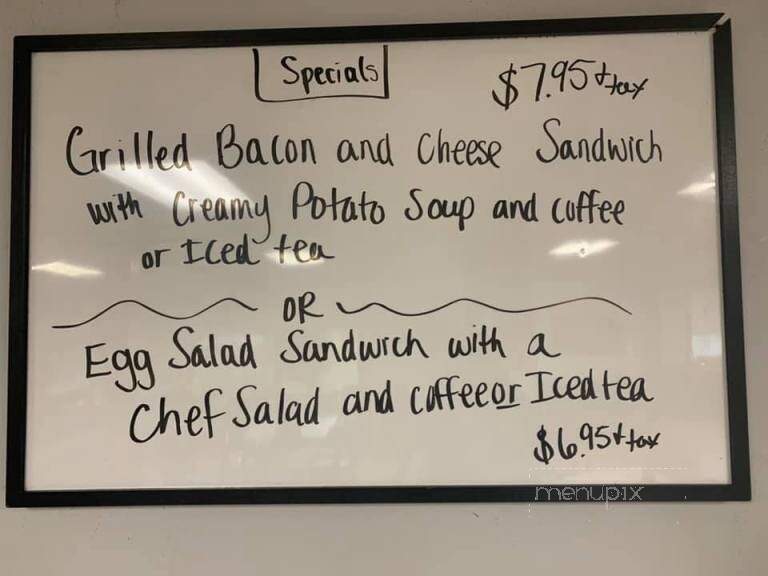 Specials
$7.95 + tax
Grilled Bacon and Cheese Sandwich
with Creamy Potato Soup and coffee
or Iced tea
OR
Egg Salad Sandwich with a
Chef Salad and coffee or Iced tea
$6.95 + tax
menupix